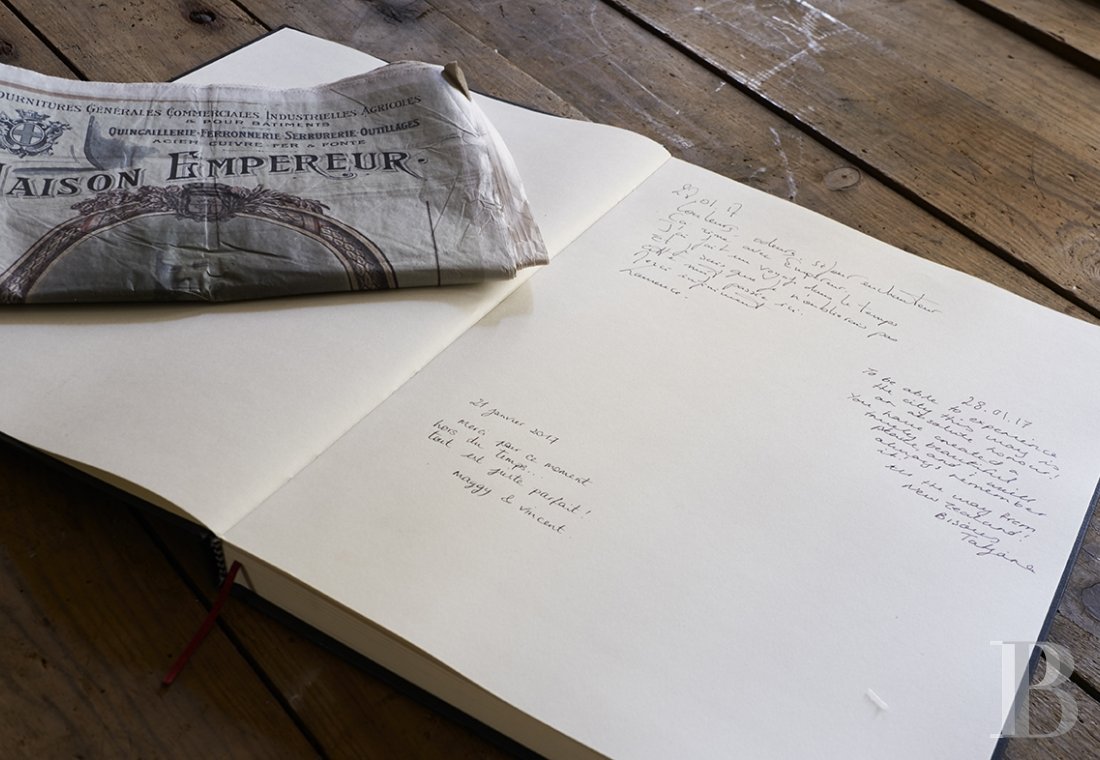 OURNITURES GÉNÉRALES COMMERCIALES INDUSTRIELLES AGRICOLES
& POUR BÂTIMENTS
QUINCAILLERIE-FERRONNERIE-SERRURERIE-OUTILLAGES
ACIER-CUIVRE-FER & FONTE
MAISON EMPEREUR
01.17
Couleurs, odeurs: séjour enchanteur
Ça rime avec Empereur
J'ai fait un voyage dans le temps
Et je sais que je n'oublierais pas
nuit passée ici.
Merci infiniment
21 janvier 2017
merci pour ce moment
hors du temps..
tout est juste parfait!
maggy & vincent
28.01.17
To be able to experience
the city this way is
an absolute honour!
You have created a
simply beautiful
place and I will
always remember
it!
All the way from
New Zealand!
Bisous
Tatjana
B